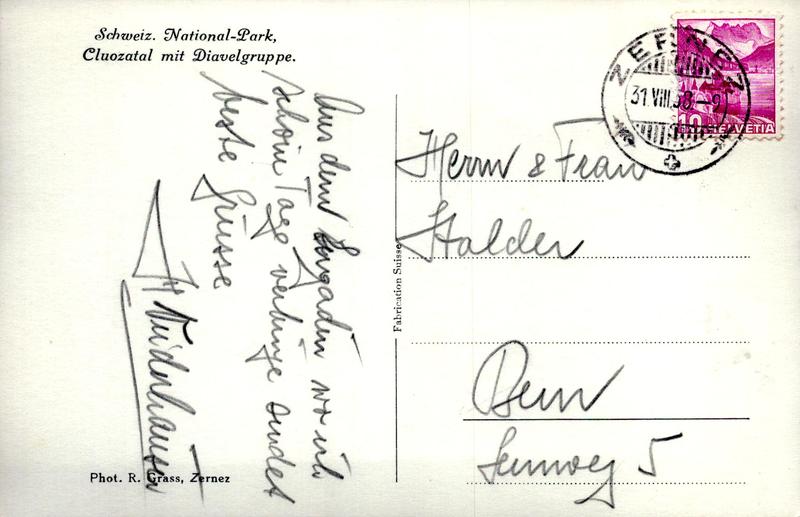 Schweiz. National-Park,
Cluozatal mit Diavelgruppe.
Aus dem Engadin wo ich
schöne Tage verbringe sendet
beste Grüsse
Phot. R. Grass, Zernez
Fabrication Suisse
ZERNEZ
31.VIII.38–9
10 HELVETIA
Herrn & Frau
Stalder
Bern
5